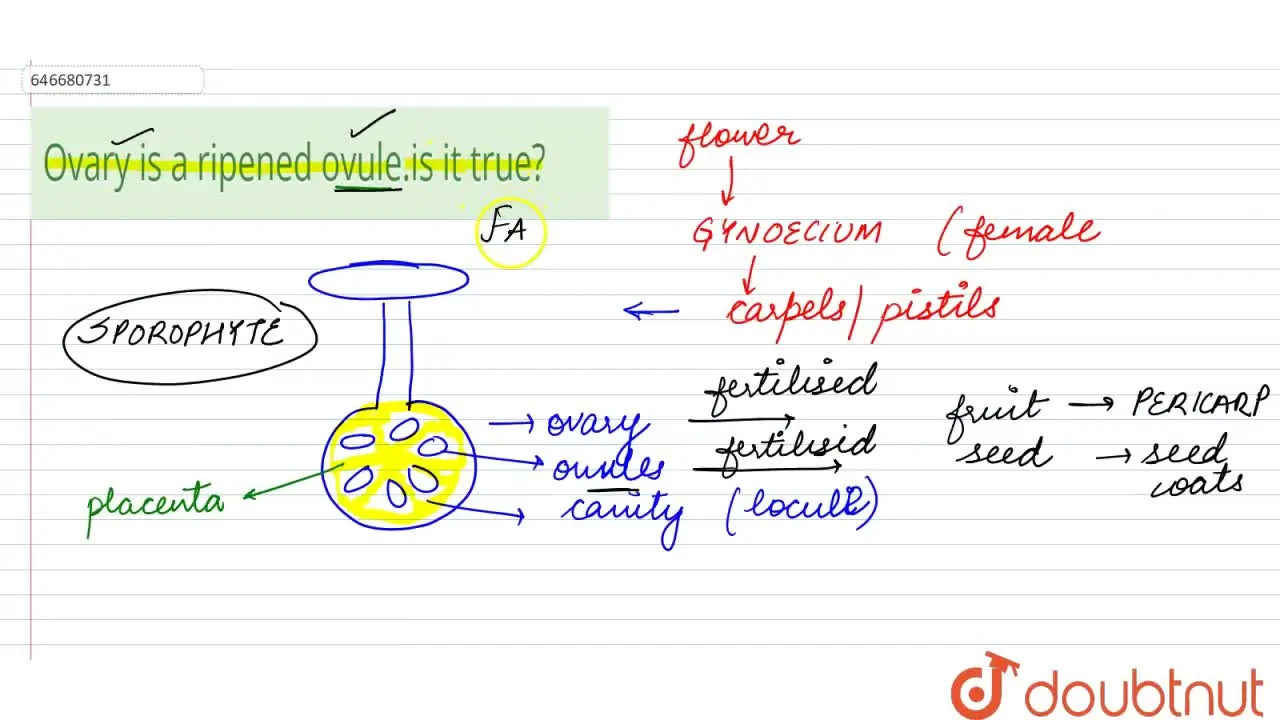 646680731
Ovary is a ripened ovule.is it true?
FA
flower
GYNOECIUM (female
carpels/pistils
SPOROPHYTE
fertilised
ovary
fruit → PERICARP
fertilised
ovules
seed → seed coats
cavity (locule)
placenta
doubtnut